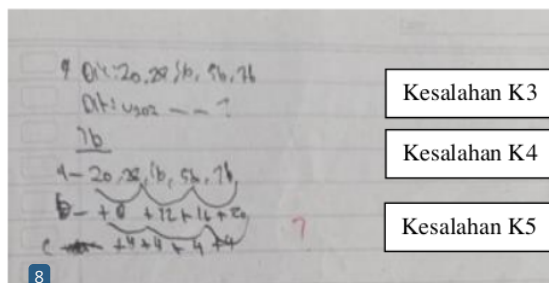 9 Dik: 20, 28, 56, 76
Dit:
7b
20, 28, 56, 76
+8 +12 + 16 + 20
+4 +4 + 4 +4
?
Kesalahan K3
Kesalahan K4
Kesalahan K5
8